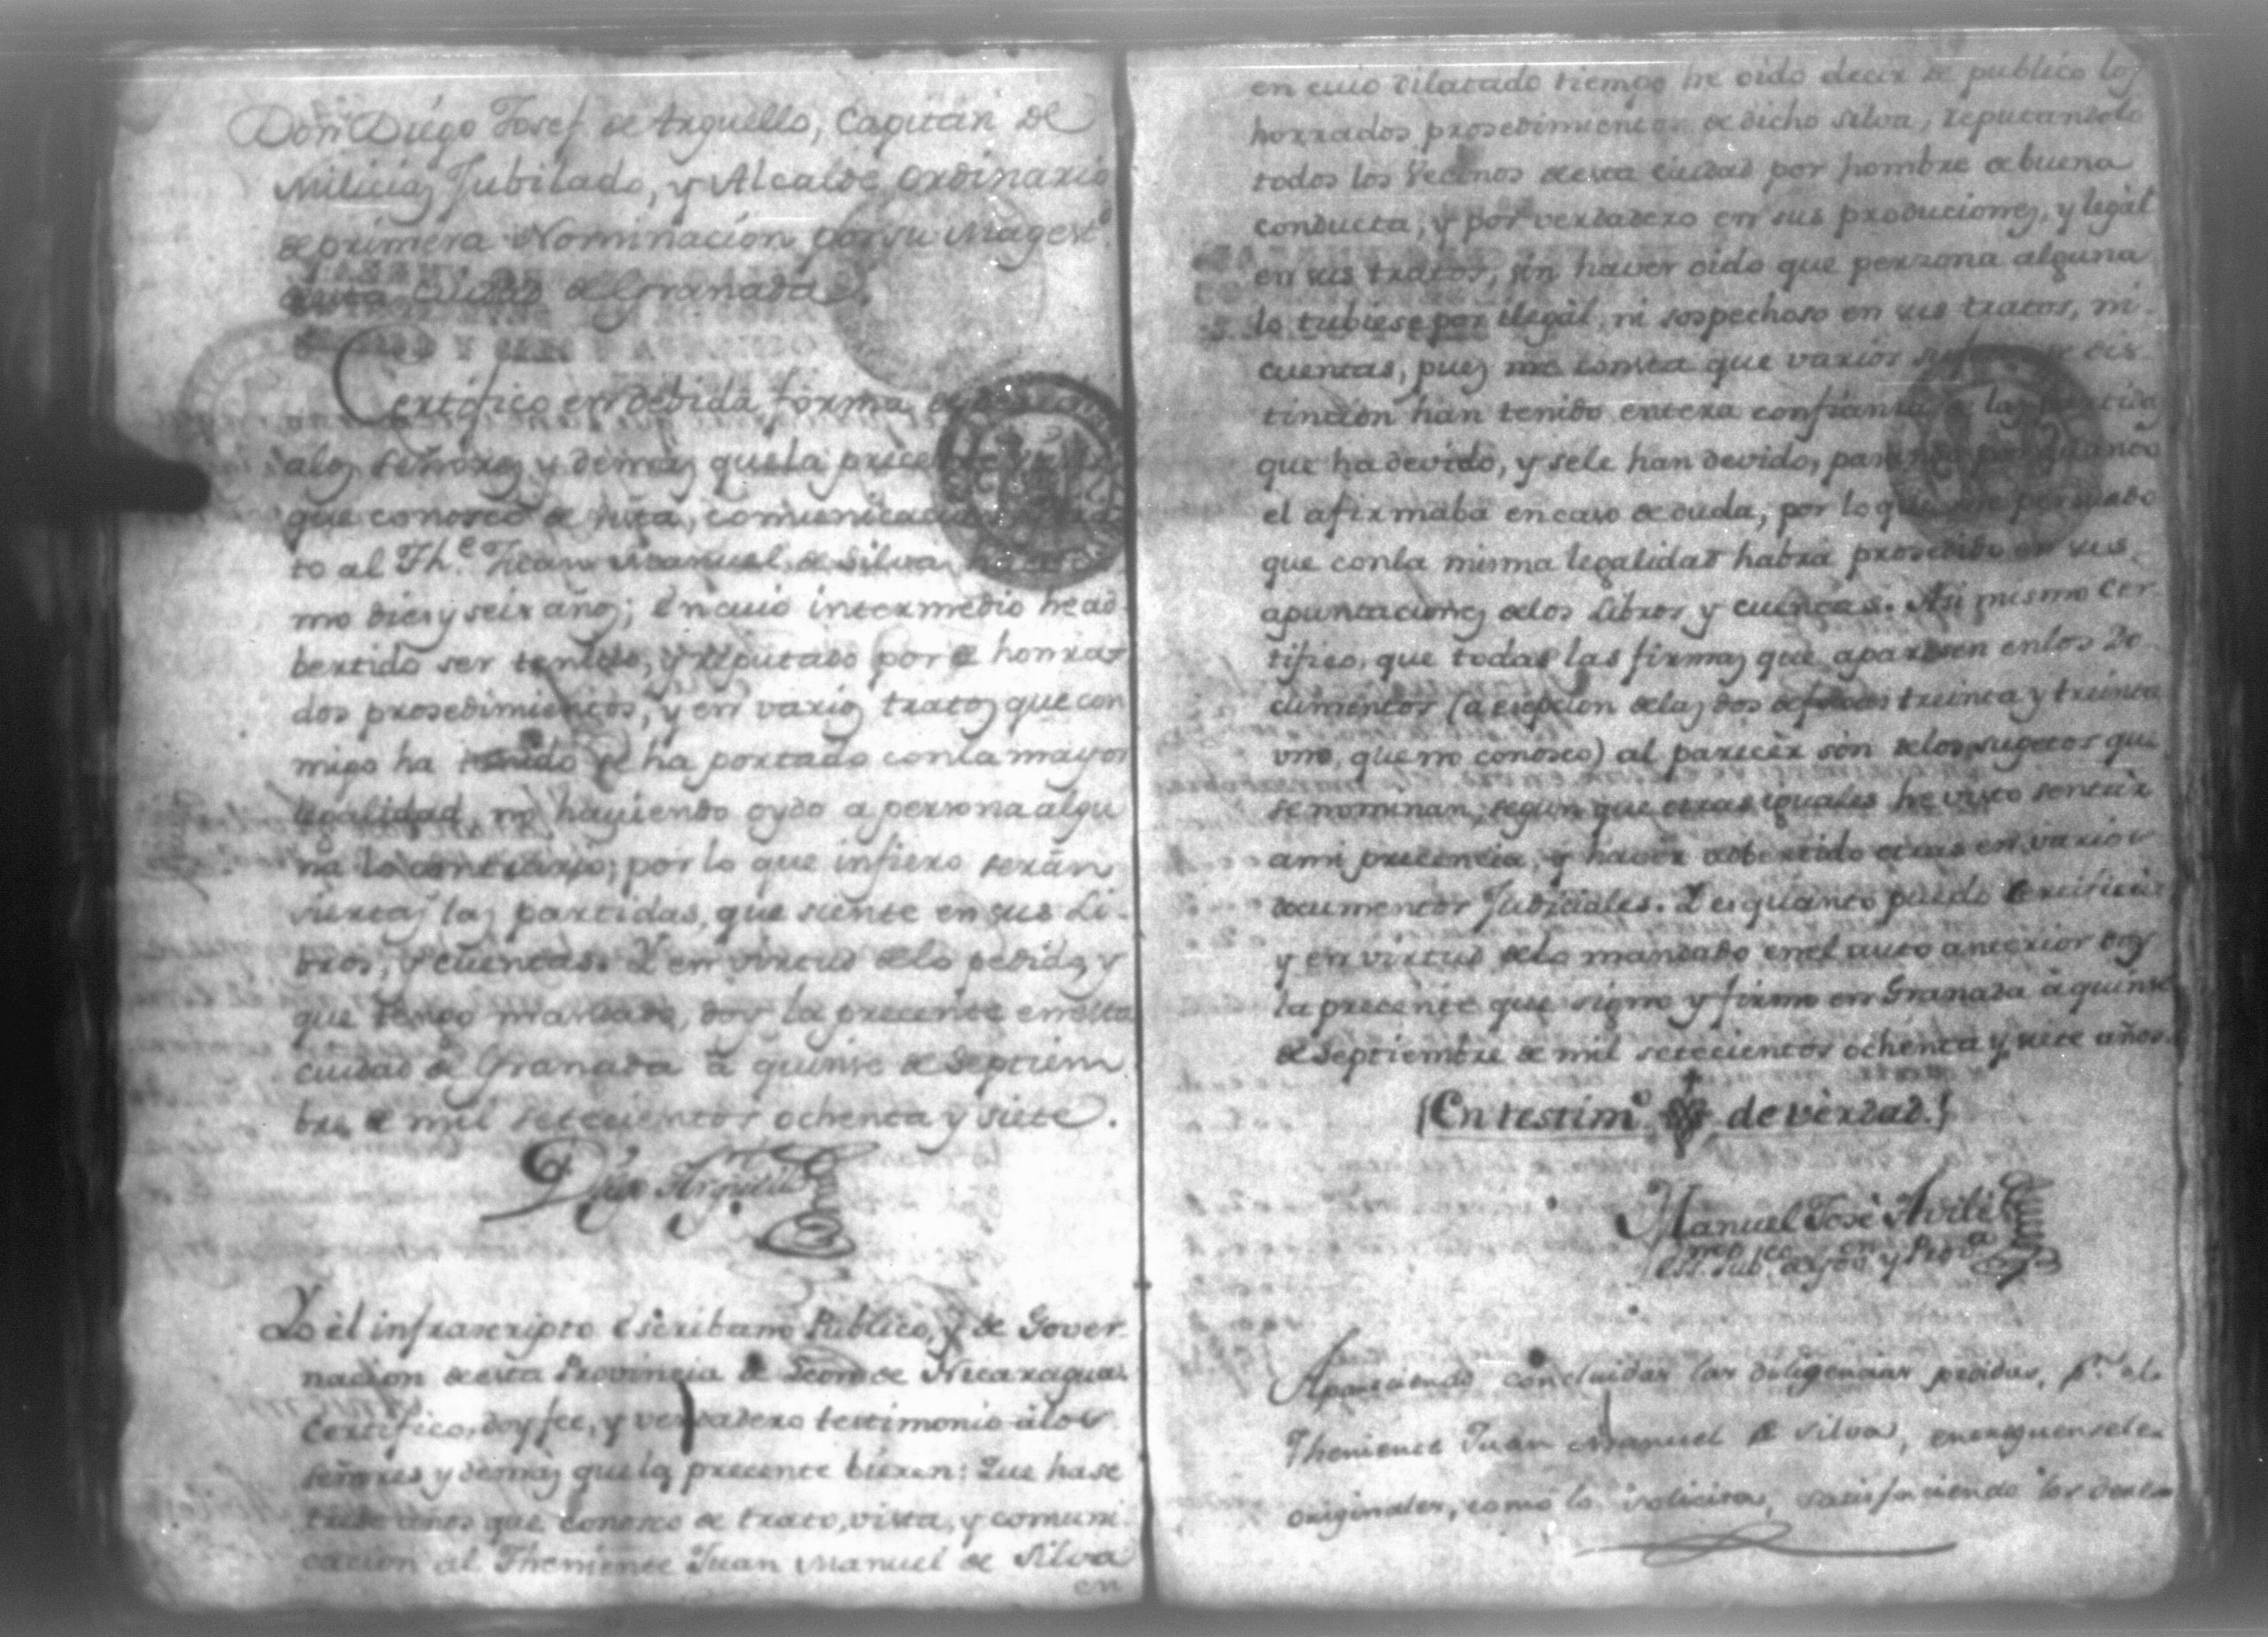 Don Diego Josef de Arguello, Capitan de
Milicias Jubilado, y Alcalde Ordinario
de primera Nominacion por su Magest.d
desta Ciudad de Granada.
Certifico en devida forma
alos Señores y demas quela precente
que conosco de vista, comunicacion
to al Th.e Juan Manuel de Silva
mo dies y seis años; en cuio intermedio he ad
bertido ser tenido, y reputado por de honrra
dos prosedimientos, y en varios tratos que con
migo ha tenido se ha portado conla mayor
legalidad, no haviendo oydo a persona algu
na lo contrario; por lo que infiero serán
siertas las partidas, que siente en sus Li
bros, y cuentas. Y en virtud delo pedido, y
que tengo mandado, doy la precente en esta
ciudad de Granada á quinse de Septiem
bre de mil setecientos ochenta y siete.
Diego Arguello
Yo el infrascripto escribano Publico, y de Gover
nacion desta Provincia de Leon de Nicaragua.
Certifico, doy fee, y verdadero testimonio álos
señores y demas quela precente bieren: Que hase
años que conosco de trato, vista, y comuni
cacion al Theniente Juan Manuel de Silva
en
en cuio dilatado tiempo he oido decir de publico los
horrados prosedimientos de dicho Silva, reputandolo
todos los Vecinos desta ciudad por hombre de buena
conducta, y por verdadero en sus produciones, y legál
en sus tratos, sin haver oido que perzona alguna
lo tubiese por ilegál, ni sospechoso en sus tratos, ni
cuentas, pues me consta que varios dis
tincion han tenido entera confianza las partidas
que ha devido, y sele han devido,
el afirmaba en caso de duda, por lo que
que conla misma legalidad habrá prosedido en sus
apuntaciones delos Libros y cuentas. Asi mismo Cer
tifico, que todas las firmas que aparesen enlos Do
cumentos (a esepcion delas dos de foxas treinta y treinta
uno, que no conosco) al parecér son delos sugetos que
se nominan, segun que otras iguales he visto sentár
ami precencia, y haver adbertido otras en varios
documentos Judiciales. Y es quanto puedo Certificar
y en virtud delo mandado enel auto anterior doy
la precente que signo y firmo en Granada á quinse
de Septiembre de mil setecientos ochenta y siete años.
(En testim.o de vèrdad.)
Manuel José Avilés
Apareciendo concluidas las diligencias pedidas, p.r el
Theniente Juan Manuel de Silva, entreguensele
originales, como lo solicita, satisfaciendo los derec